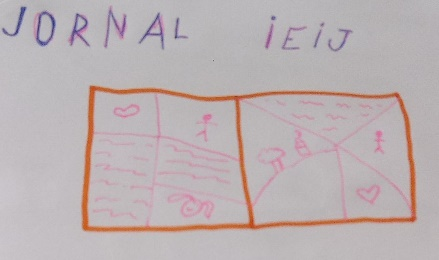 JORNAL iEiJ